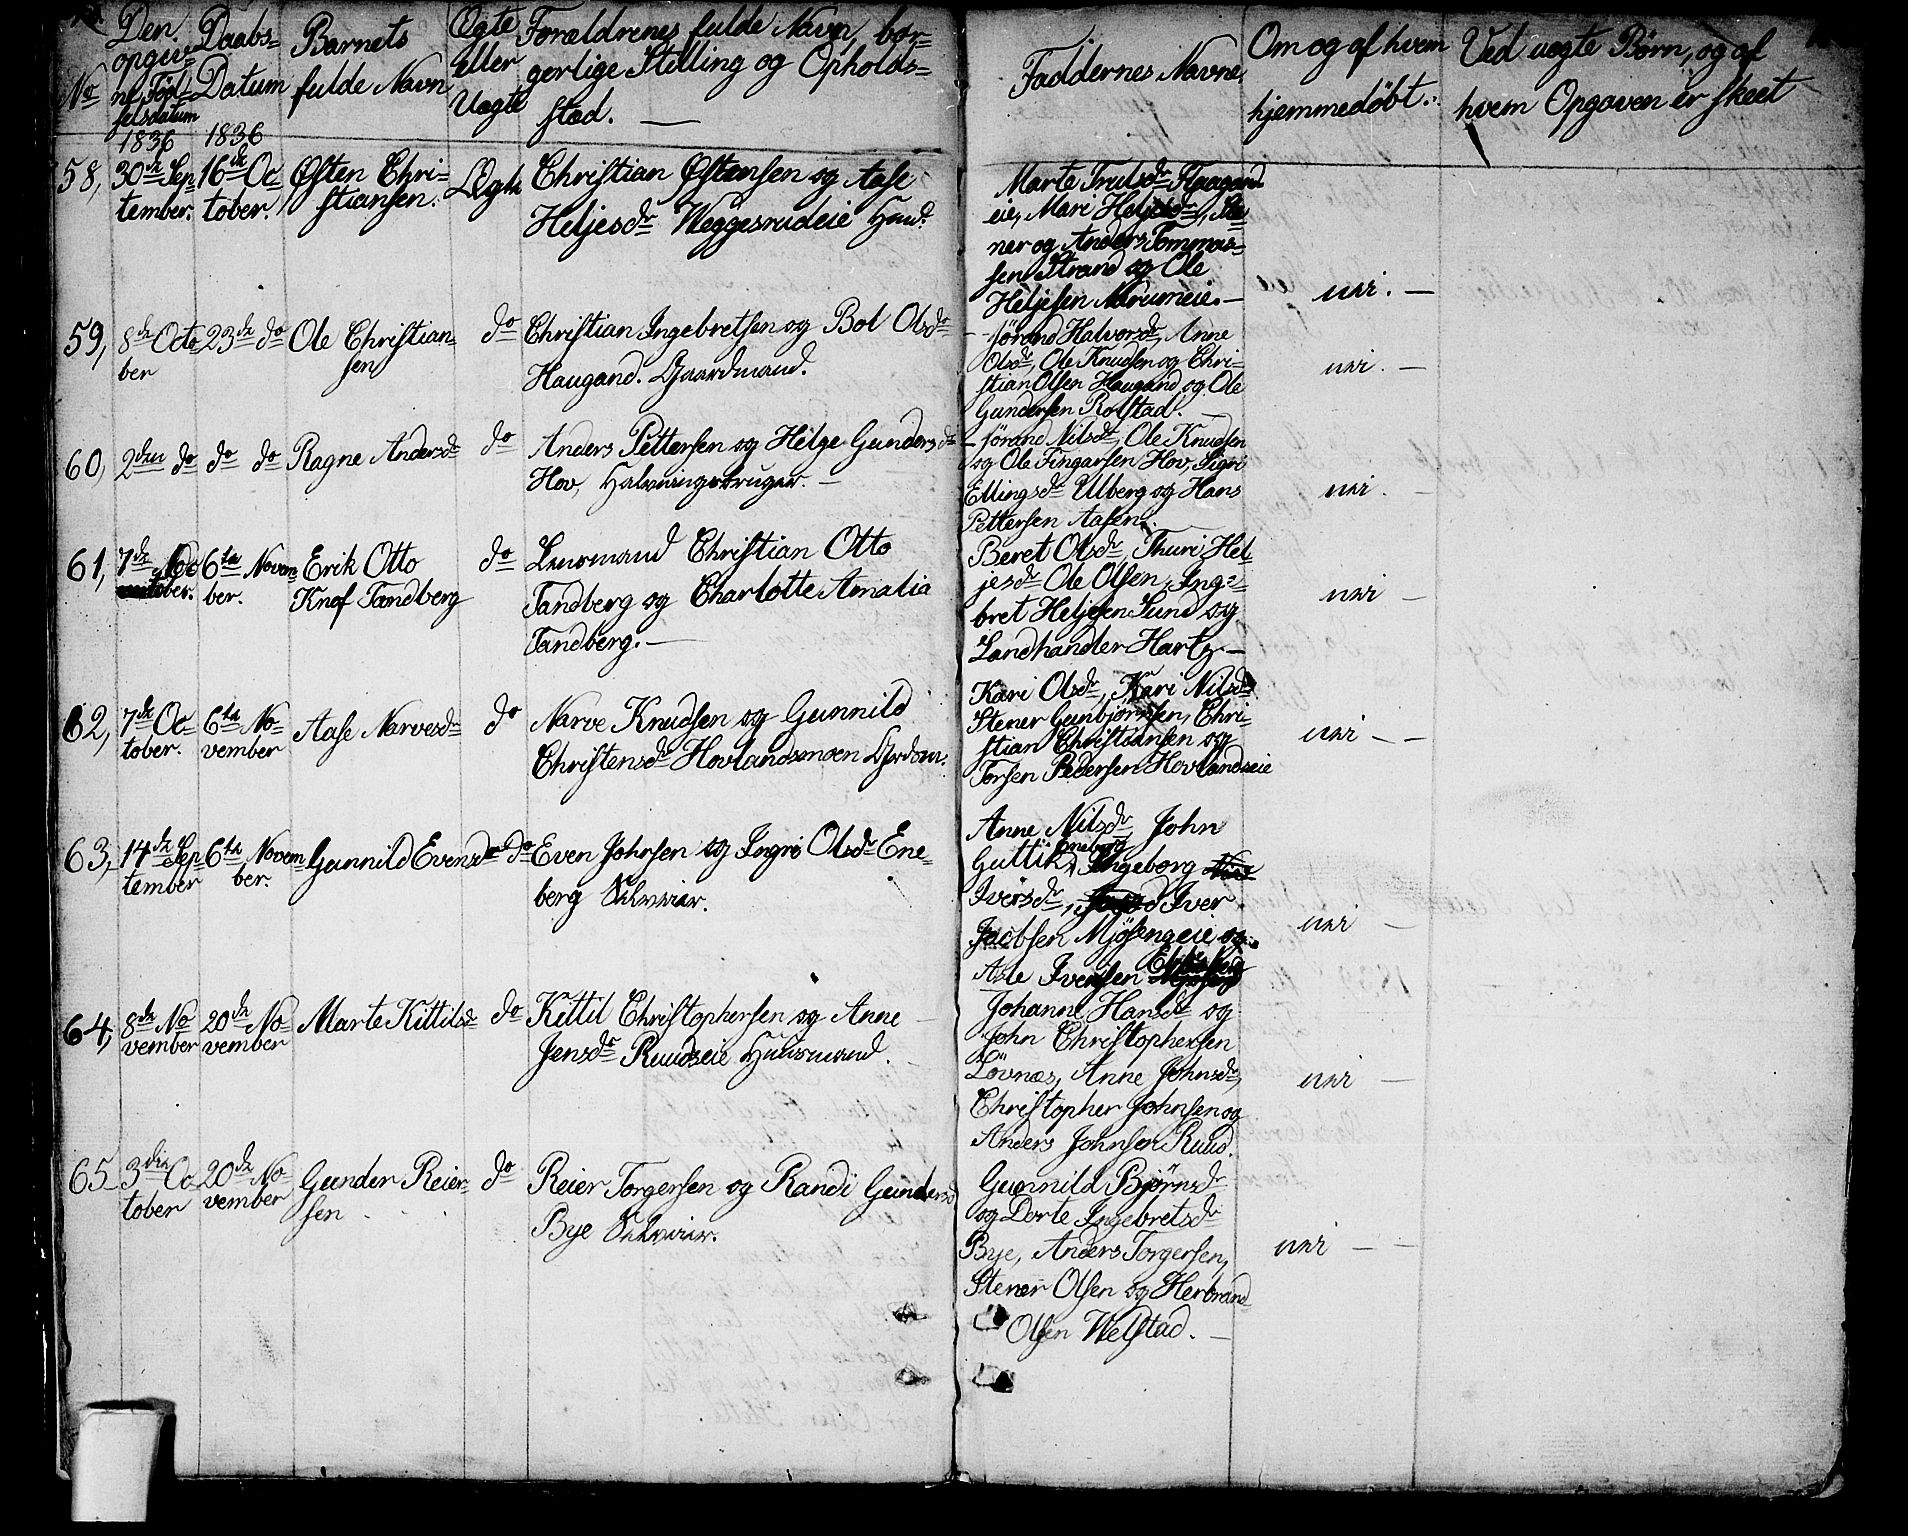 No
Den
opgiv-
ne Fød-
selsdatum
1836
Daabs-
Datum
1836
Barnets
fulde Navn
Ægte
eller
Uægte
Forældrenes fulde Navn, bor-
gerlige Stilling og Opholds-
sted. —
Faddernes Navne
Om og af hvem
hjemmedøbt.
Ved uægte Børn, og af
hvem Opgaven er skeet
58,
30te Sep
tember.
16de Oc
tober.
Østen Chri-
stiansen.
Ægte
Christian Østensen og Aase
Heljesdr Weggesrudeie Huusd.
Marte Trulsdr Haugand
eie, Mari Heljesdr, Ste
ner og Anders Tommas-
sen Strand og Ole
Heljesen Narumeie. —
nei. —
59,
8de Octo
ber
23de do
Ole Christian-
sen
do
Christian Ingebretsen og Bol Olsdr
Haugand. Gaardmand.
- Jørand Halvorsdr, Anne
Olsdr, Ole Knudsen og Chri-
stian Olsen Haugand og Ole
Gundersen Rolstad. —
nei. —
60,
2den do
do do
Ragne Andersdr
do
Anders Pettersen og Helge Gundersdr
Hov, Halvningsbruger. —
- Jørand Nilsdr, Ole Knudsen
og Ole Fingarsen Hov, Sigri
Ellingsdr Ulberg og Hans
Pettersen Aasen.
nei. —
61,
7de
tober.
6te Novem
ber.
Erik Otto
Knof Tandberg
do
Lensmand Christian Otto
Tandberg og Charlotte Amalia
Tandberg. —
Beret Olsdr, Thuri Hel
jesdr Ole Olsen, Inge-
bret Heljesen Lund og
Landhandler Hartz —
nei —
62,
7de Oc
tober.
6te No-
vember
Aase Narvesdr
do
Narve Knudsen og Gunnild
Christensdr Hovlandsmoen
Kari Olsdr, Kari Nilsdr
Stener Gunbjørnsen, Chri-
stian Christiansen og
Torsen Pedersen Hovlandseie
nei - -
63,
14de Sep
tember
6te Novem
ber.
Gunnild Evensdr
do
Even Johnsen og Ingri Olsdr Ene-
berg Selveier.
Anne Nilsdr John
Guttik Eneberg Ingeborg
Iversdr, Iver
Jacobsen Mjøsengeie og
Ale Iversen
nei —
64,
8de No
vember
20de No
vember
Marte Kittilsdr
do
Kittil Christophersen og Anne
Jensdr Ruudseie Huusmand.
Johanne Hansdr og
John Christophersen
Løvnæs, Anne Johnsdr,
Christopher Johnsen og
Anders Johnsen Ruud.
nei —
65
3die Oc
tober
20de No
vember
Gunder Reier-
sen
do
Reier Torgersen og Randi Gundersd
Bye Selveier.
Gunnild Bjørnsdr
og Dorte Ingebretsdr
Bye, Anders Torgersen,
Stener Olsen og Herbrand
Olsen Welstad. —
nei — —